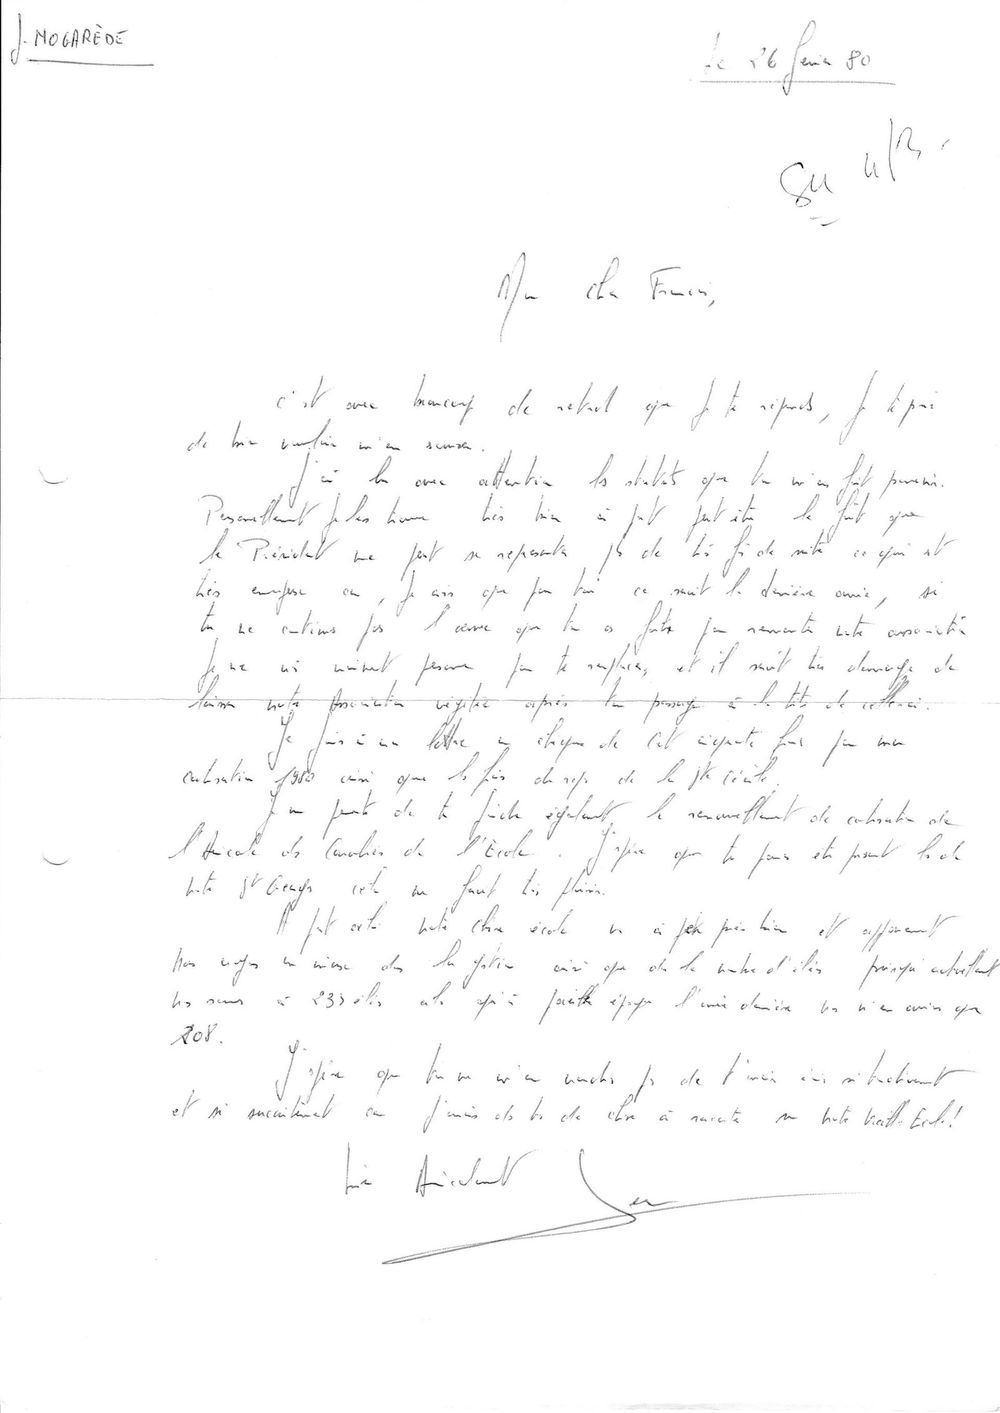 J. MOGARÈDE
Le 26 février 80
Mon cher Francis,
C'est avec beaucoup de retard que je te réponds, je te prie
de bien vouloir m'en excuser.
J'ai lu avec attention les statuts que tu m'as fait parvenir.
Personnellement je les trouve très bien à part peut être le fait que
le Président ne peut se représenter de suite ce qui est
très car, je crois que pour toi ce serait la dernière année, si
tu ne continues pas l'oeuvre que tu as faite pour remonter notre association
je ne vois vraiment personne pour te remplacer, et il serait très dommage de
laisser notre Association végéter après ton passage à la tête de celle-ci.
Je joins à ma lettre un chèque de cinquante francs pour ma
cotisation 1980 ainsi que les frais du repas de la Ste Cécile.
J'en profite de te également, le renouvellement de cotisation de
l'Amicale des Cavaliers de l'Ecole. J'espère que tu pourras être présent lors de
notre St Georges cela me ferait très plaisir.
A part cela notre chère école va à peu près bien et
nous dans la gestion ainsi que dans le nombre d'élèves puisqu'actuellement
nous sommes à 233 élèves alors qu'à pareille époque l'année dernière nous n'en avions que
208.
J'espère que tu ne m'en voudras pas de t'avoir écrit si tardivement
et si succinctement car j'aurais des tas de choses à raconter sur notre vieille Ecole!
Bien Amicalement